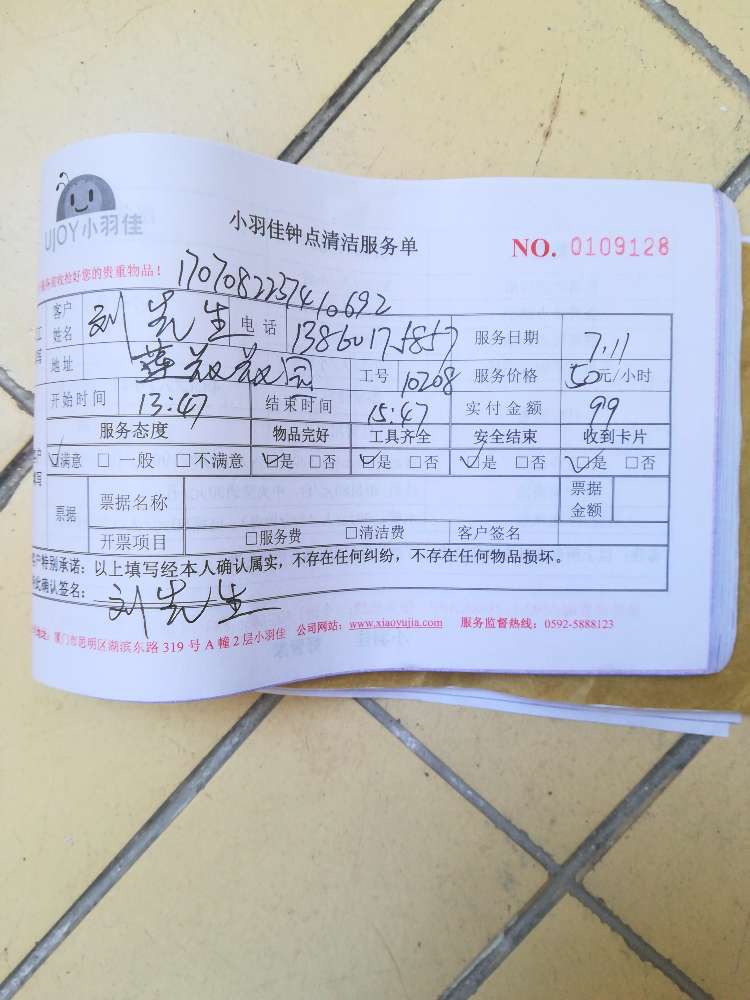 UJOY小羽佳
小羽佳钟点清洁服务单
NO. 0109128
收拾好您的贵重物品！
客户姓名 刘先生 电话 13860175857 服务日期 7.11
地址 工号 10208 服务价格 50元/小时
开始时间 13:47 结束时间 15:47 实付金额 99
服务态度 物品完好 工具齐全 安全结束 收到卡片
☑满意 □一般 □不满意 ☑是 □否 ☑是 □否 ☑是 □否 ☑是 □否
票据 票据名称 票据金额
开票项目 □服务费 □清洁费 客户签名
客户特别承诺：以上填写经本人确认属实，不存在任何纠纷，不存在任何物品损坏。
确认签名： 刘先生
厦门市思明区湖滨东路 319 号 A 幢 2 层小羽佳 公司网站：www.xiaoyujia.com 服务监督热线：0592-5888123